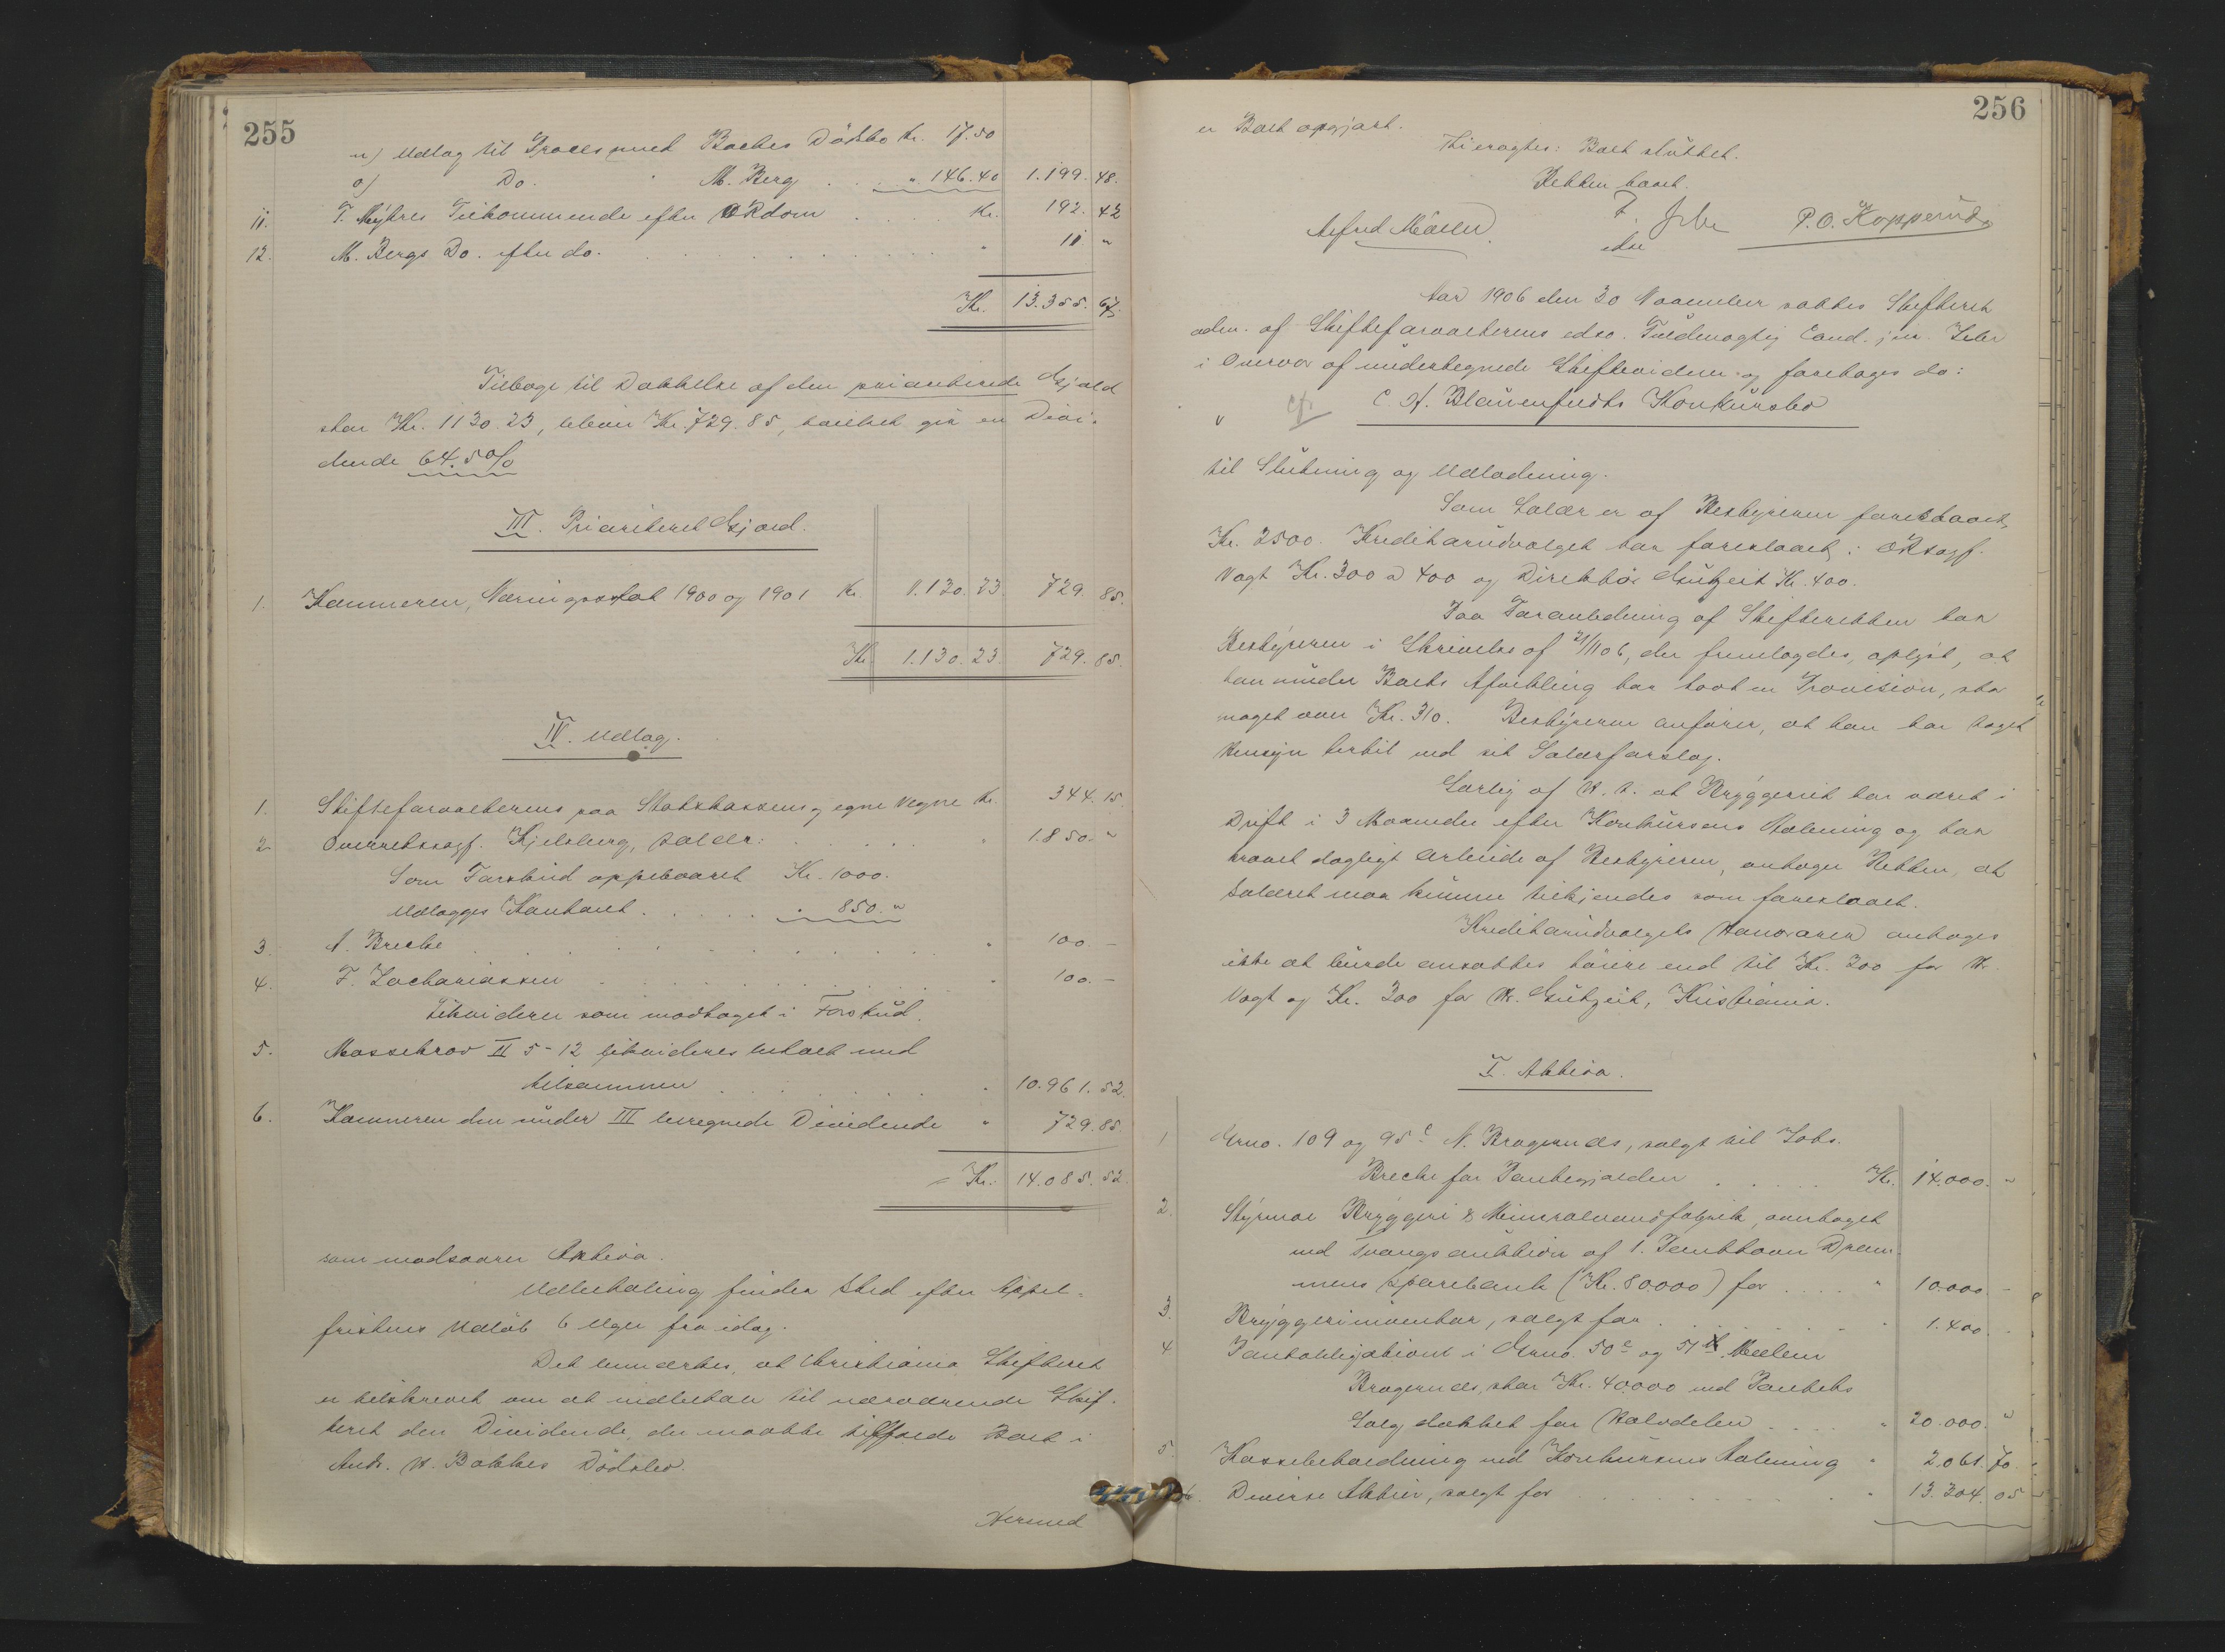 255
n) Udlæg til Proces mod Backes Dödsbo Kr. 17.50
o) Do. " M. Berg . . . " 146.40 1.199.48.
11. T. Myhres Tilkommende efter ORdom . . . . Kr. 192.42
12. M. Bergs Do. efter do. . . . . . . . . . . " 11 "
Kr. 13.355.67.
Tilbage til Dækkelse af den prioriterede Gjæld
stor Kr. 1130.23, bliver Kr. 729.85, hvilket gir en Divi-
dende 64.5%
III. Prioriteret Gjæld.
1. Kæmneren, Næringsskat 1900 og 1901 Kr. 1.130.23. 729.85.
Kr. 1.130.23. 729.85.
IV. Udlæg.
1. Skifteforvalterens paa Statskassens og egne Vegne Kr. 344.15
2. Overretssagf. Kjelsberg, Salær: . . . . . " 1.850. "
Som Forskud oppebaaret Kr. 1000.
Udlægges Kontant . . . . . " 850. "
3. A. Brecke . . . . . . . . . . " 100.—
4. F. Zachariassen . . . . . . . . . " 100.—
Likviderer som modtaget i Forskud.
5. Massekrav II 5-12 likvideres betalt med
tilsammen . . . . . . . " 10.961.52.
6. Kæmneren den under III beregnede Dividende " 729.85.
Kr. 14.085.52.
som modsvarer Aktiva.
Udbetaling finder Sted efter Appel-
fristens Udløb 6 Uger fra idag.
Det bemærkes, at Christiania Skifteret
er tilskrevet om at indbetale til nærværende Skif-
teret den Dividende, der maatte tilfalde Boet i
Andr. H. Bakkes Dödsbo.
Hermed
256
er Boet opgjort.
Thi eragtes: Boet sluttet.
Retten hævet.
Alfred Möller F. P. O. Kopperud
edsv
Aar 1906 den 30 November sattes Skifteret
adm. af Skifteforvalterens edsv. Fuldmægtig Cand. jur.
i Overvær af undertegnede Skiftevidner og foretoges da:
cfr C. H. Blauenfeldts Konkursbo
til Slutning og Udlodning.
Som Salær er af Bestyreren foreslaaet
Kr. 2500. Kreditorudvalget har foreslaaet: ORsagf.
Vogt Kr. 300 à 400 og Direktör Gutzeit Kr. 400.
Paa Foranledning af Skifteretten har
Bestyreren i Skrivelse af 21/11 06, der fremlagdes, oplyst, at
han under Boets Afvikling har havt en Provision, stor
noget over Kr. 310. Bestyreren anfører, at han har taget
Hensyn hertil ved sit Salærforslag.
Særlig af H. t. at Bryggeriet har været i
Drift i 3 Maaneder efter Konkursens Aabning og har
krævet dagligt Arbeide af Bestyreren, antager Retten, at
Salæret maa kunne tilkjendes som foreslaaet.
Kreditorudvalgets Honorarer antages
ikke at burde ansættes höiere end til Kr. 300 for Hr.
Vogt og Kr. 300 for Hr. Gutzeit, Kristiania.
I. Aktiva.
1 Grno. 109 og 95c N. Bragernæs, solgt til Johs.
Brecke for Pantegjælden . . . . . Kr. 14.000. "
2. Styrmoe Bryggeri & Mineralvandfabrik, overtaget
ved Tvangsauktion af 1. Panthaver Dram-
mens Sparebank (Kr. 80.000) for . . . . " 10.000.—
3. Bryggeriinventar, solgt for . . . . . . " 1.400.—
4 Pantobligationer i Grno. 50c og 51 Mellem
Bragernæs, stor Kr. 40.000 ved Pantets
Salg dækket for Halvdelen . . . . " 20.000. "
5 Kassebeholdning ved Konkursens Aabning " 2.061.70.
6. Diverse Aktier, solgt for . . . . . . . . " 13.304.05